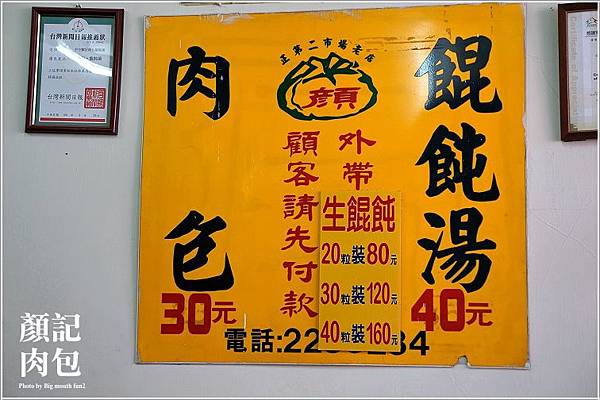 台灣新聞日報推薦狀
台灣新聞日報
正第二市場老店
顏
肉包
30元
外帶
顧客請先付款
餛飩湯
40元
生餛飩
20粒裝80元
30粒裝120元
40粒裝160元
電話:22
34
顏記
肉包
Photo by Big mouth fun2